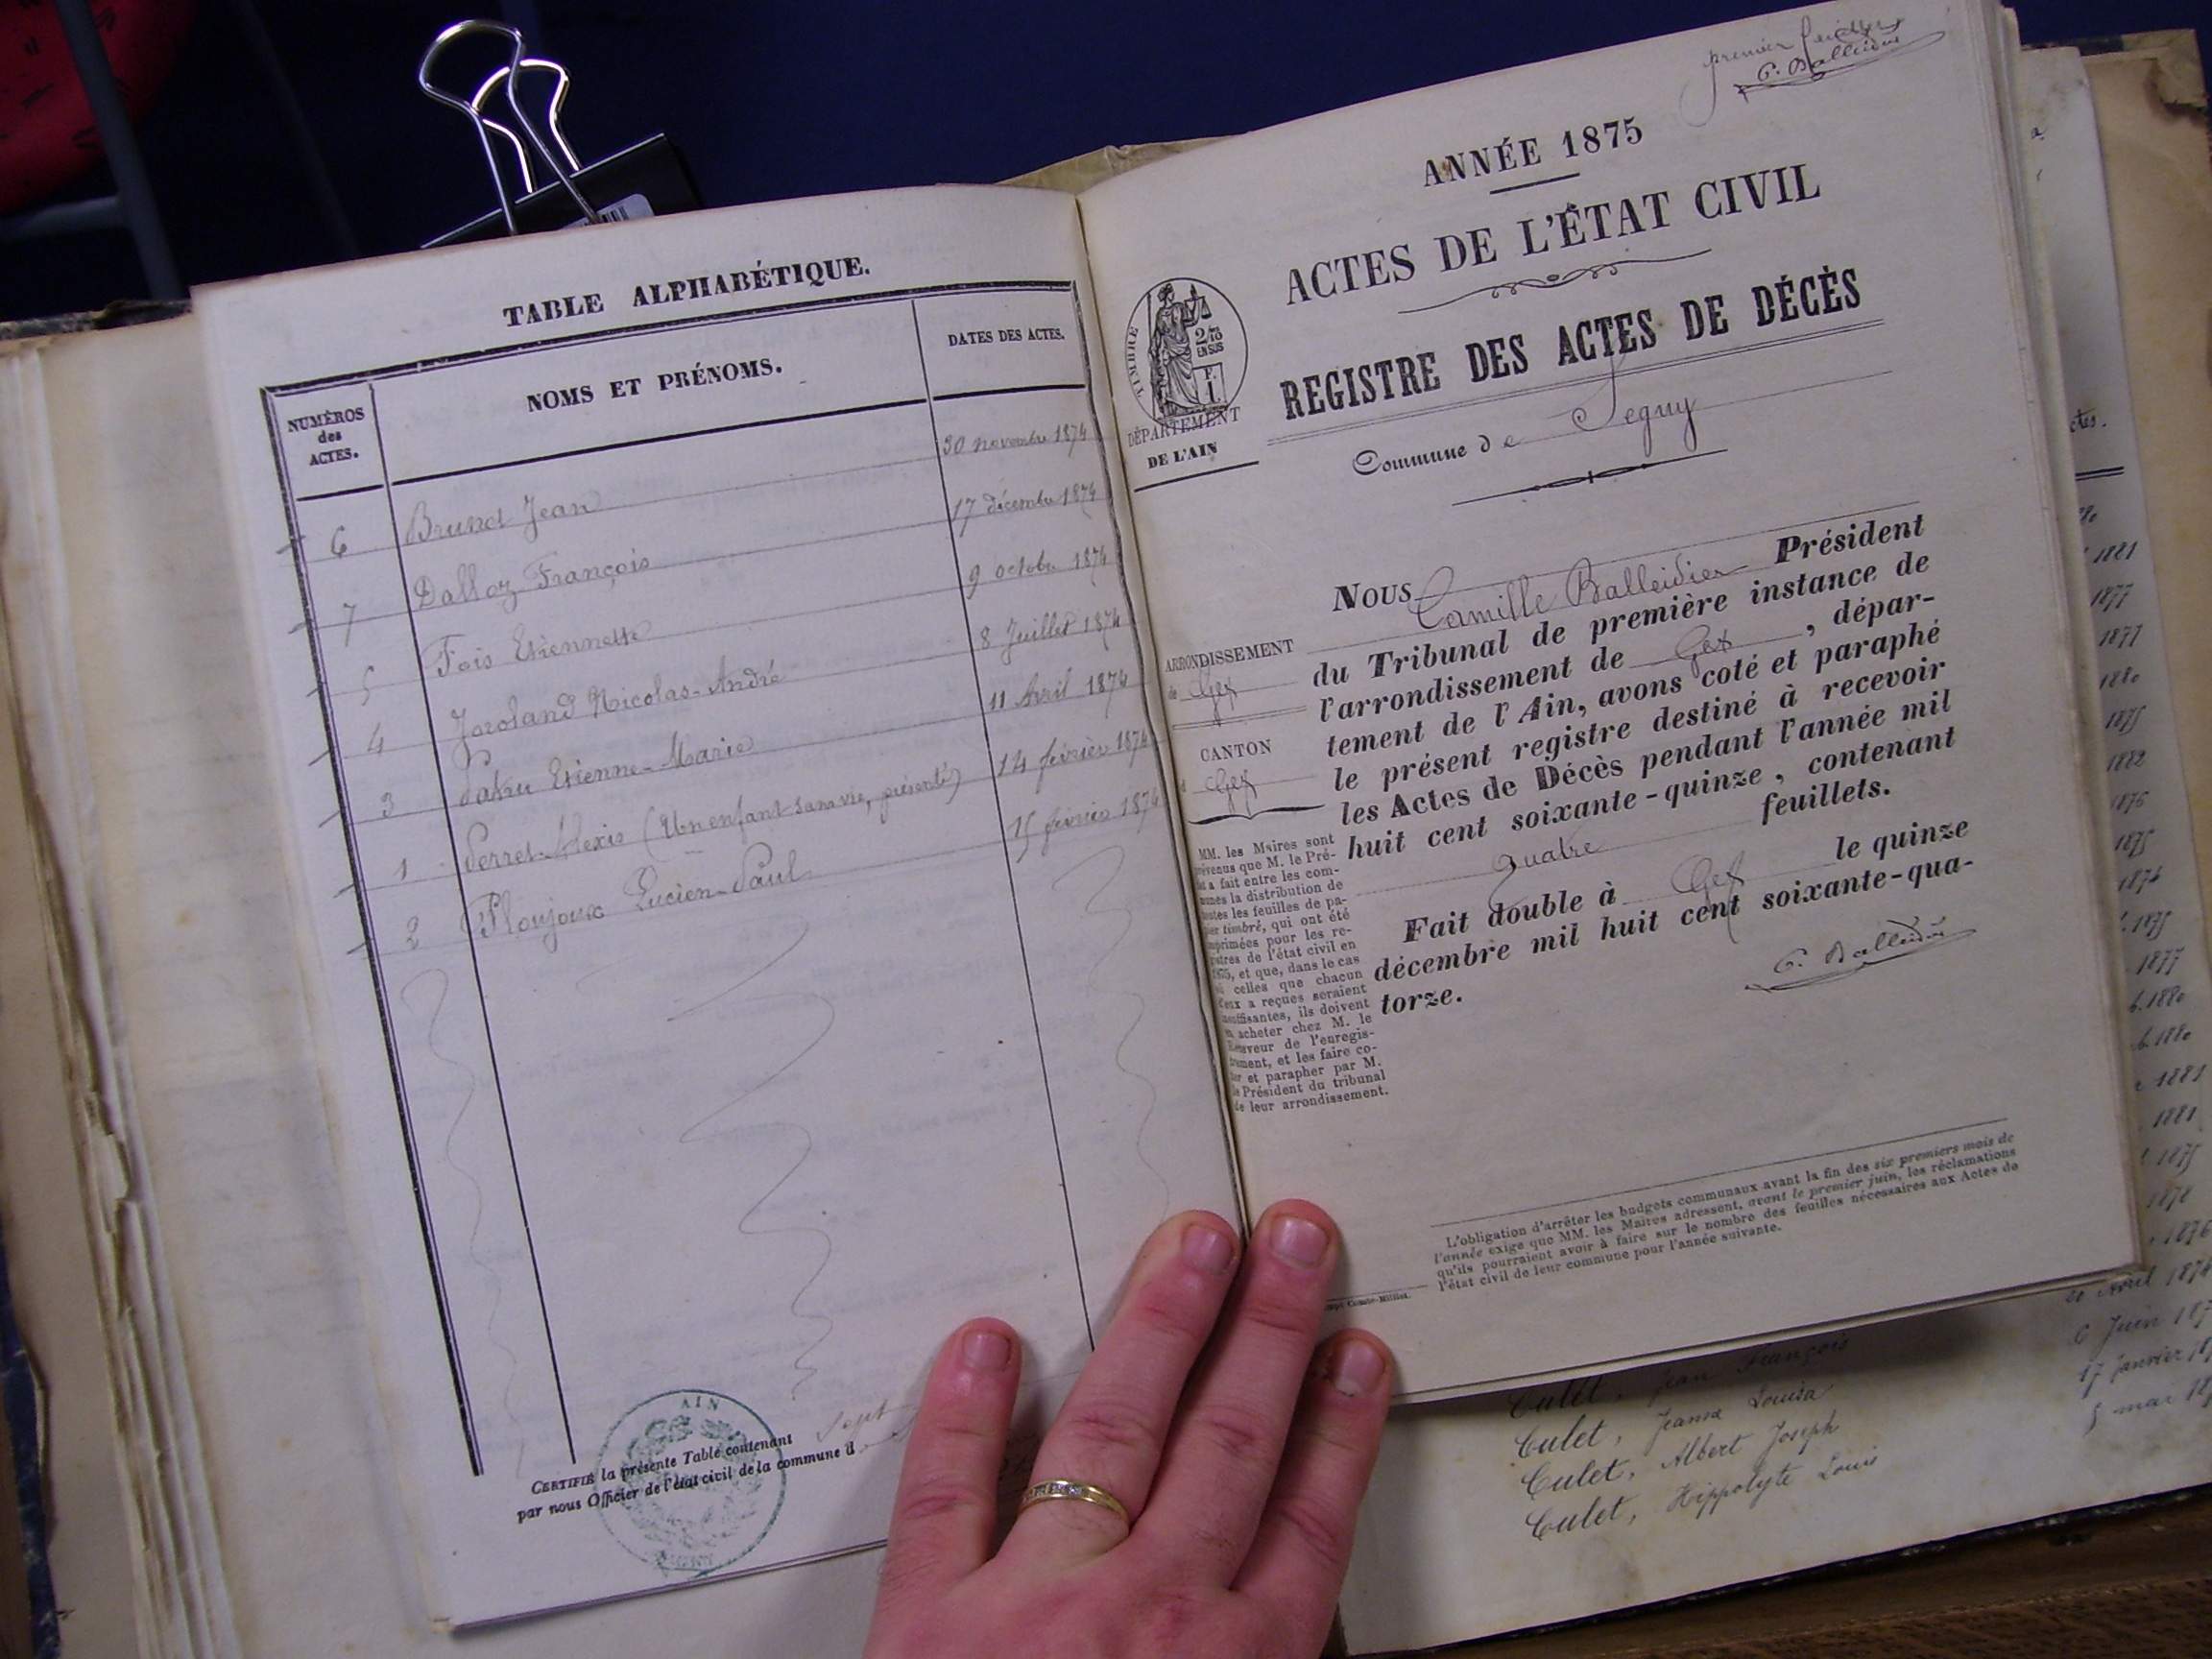 TABLE ALPHABÉTIQUE.
NUMÉROS
des
ACTES.
NOMS ET PRÉNOMS.
DATES DES ACTES.
6 Brunet Jean 30 novembre 1874
7 Dalloz François 17 décembre 1874
5 Fois Etiennette 9 octobre 1874
4 Nicolas-André 8 Juillet 1874
3 Etienne-Marie 11 Avril 1874
1 Perret Alexis (Un enfant sans vie, présenté) 14 février 1874
2 Ploujoux Lucien-Paul 15 février 1874
AIN
CERTIFIÉ la présente Table contenant Sept
par nous Officier de l'état civil de la commune d
premier feuillet
C. Balleidier
ANNÉE 1875
ACTES DE L'ÉTAT CIVIL
REGISTRE DES ACTES DE DÉCÈS
Commune de Segny
TIMBRE
2/10
EN SUS
F.
1.
DÉPARTEMENT
DE L'AIN
ARRONDISSEMENT
de Gex
CANTON
d Gex
NOUS Camille Balleidier Président
du Tribunal de première instance de
l'arrondissement de Gex, dépar-
tement de l'Ain, avons coté et paraphé
le présent registre destiné à recevoir
les Actes de Décès pendant l'année mil
huit cent soixante-quinze, contenant
quatre feuillets.
Fait double à Gex le quinze
décembre mil huit cent soixante-qua-
torze.
C. Balleidier
MM. les Maires sont
prévenus que M. le Pré-
fet a fait entre les com-
munes la distribution de
toutes les feuilles de pa-
pier timbré, qui ont été
imprimées pour les re-
gistres de l'état civil en
1875, et que, dans le cas
où celles que chacun
d'eux a reçues seraient
insuffisantes, ils doivent
en acheter chez M. le
Receveur de l'enregis-
trement, et les faire co-
ter et parapher par M.
le Président du tribunal
de leur arrondissement.
L'obligation d'arrêter les budgets communaux avant la fin des six premiers mois de
l'année exige que MM. les Maires adressent, avant le premier juin, les réclamations
qu'ils pourraient avoir à faire sur le nombre des feuilles nécessaires aux Actes de
l'état civil de leur commune pour l'année suivante.
Comte-Milliet.
ctes.
1881
1877
1877
1880
1875
1882
1876
1875
1874
1875
1877
1880
1880
1881
1881
1875
1878
1876
avril 1874
Culet, Jean François 6 Juin 187
Culet, Jeanne Louisa 17 Janvier
Culet, Albert Joseph 5 mai 18
Culet, Hippolyte Louis